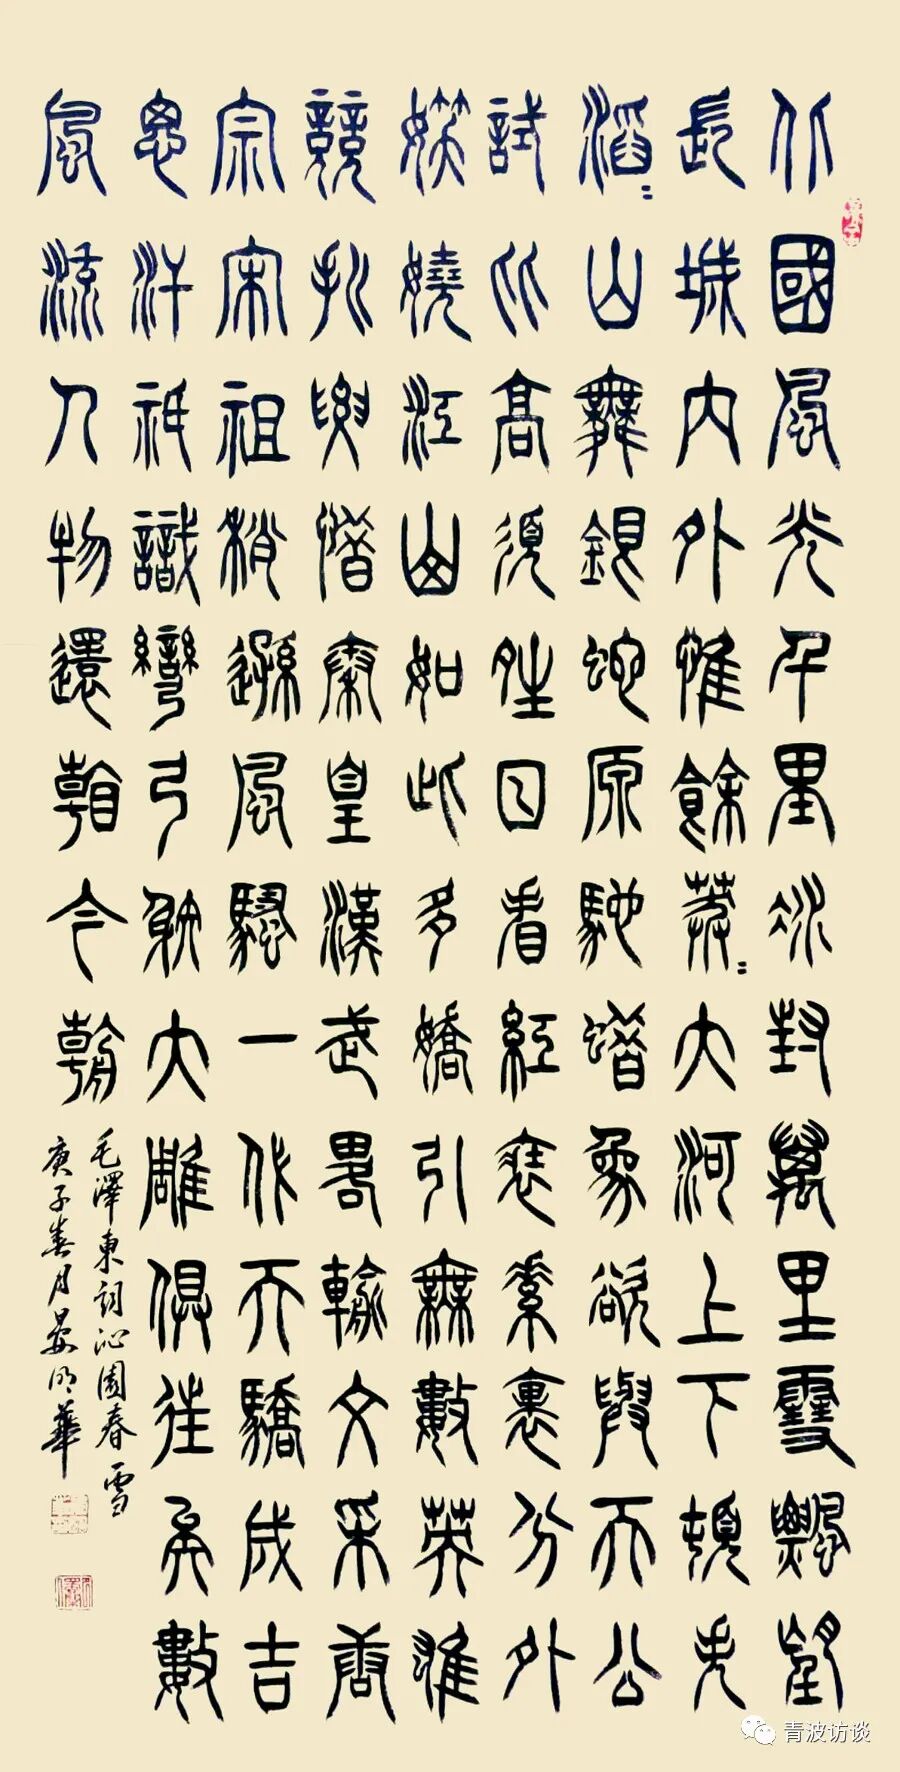 北國風光千里冰封萬里雪飄望
長城內外惟餘莽〻大河上下頓失
滔〻山舞銀蛇原馳蠟象欲與天公
試比高須晴日看紅裝素裹分外
妖嬈江山如此多嬌引無數英雄
競折腰惜秦皇漢武略輸文采唐
宗宋祖稍遜風騷一代天驕成吉
思汗祇識彎弓射大雕俱往矣數
風流人物還看今朝
毛澤東詞沁園春雪
庚子春月晏明華
青波访谈